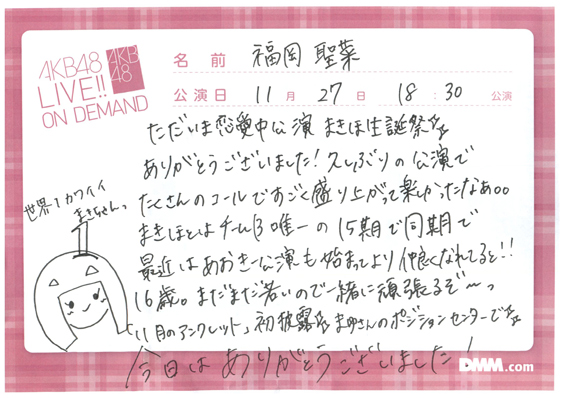 AKB48
LIVE!!
ON DEMAND
AKB
48
名前 福岡 聖菜
公演日 11月 27日 18:30 公演
ただいま恋愛中公演 まきほ生誕祭
ありがとうございました!久しぶりの公演で
たくさんのコールですごく盛り上がって楽しかったなぁ。。
まきほとはチームB唯一の15期で同期で
最近はあおきー公演も始まってより仲良くなれてると!!
16歳。まだまだ若いので一緒に頑張るぞ〜っ
「11月のアンクレット」初披露 まゆさんのポジションセンターで
今日はありがとうございました!
世界1カワイイ
まきちゃんっ
DMM.com